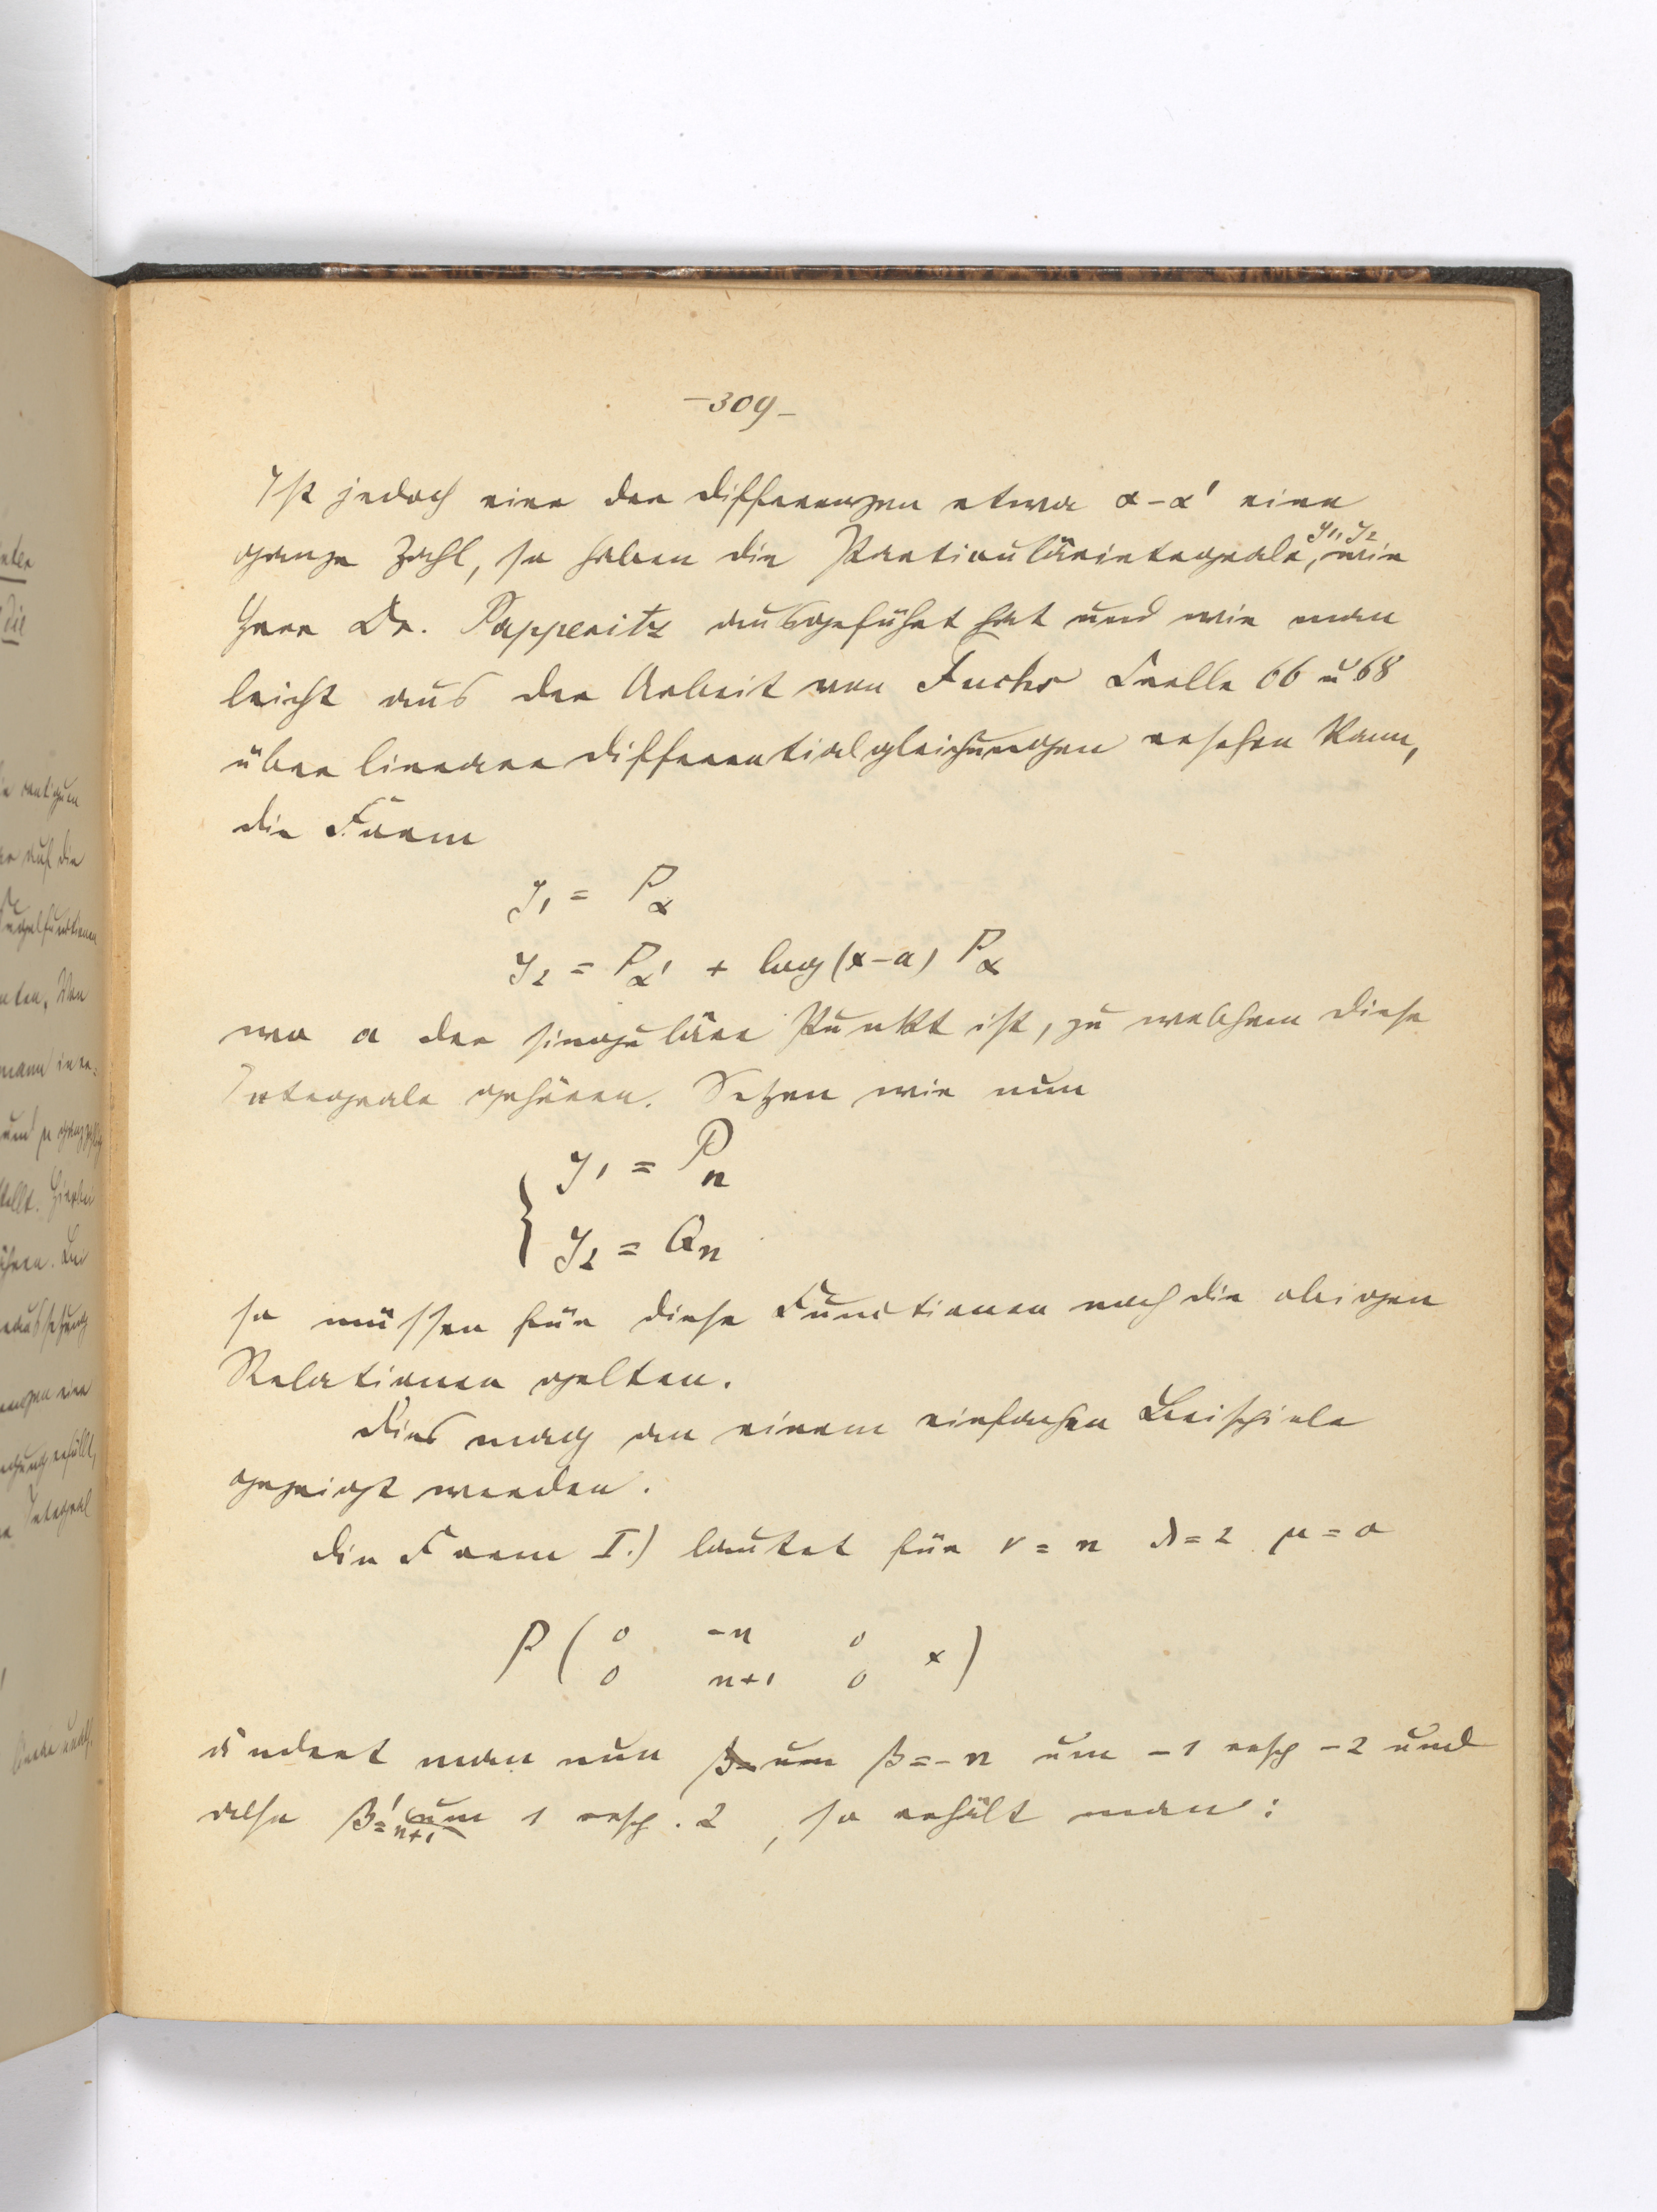 –309–
Ist jedoch eine der Differenzen etwa α–α' eine
ganze Zahl, so haben die Partikulärintegrale y₁, y₂, wie
Herr Dr. Papperitz ausgeführt hat und wie man
leicht aus der Arbeit von Fuchs Crelle 66 u 68
über lineare Differentialgleichungen ersehen kann,
die Form
y₁ = P_α
y₂ = P_α' + log (x–a) P_α
wo a der singuläre Punkt ist, zu welchem diese
Integrale gehören. Setzen wir nun
{ y₁ = P_n
y₂ = Q_n
so müssen für diese Functionen noch die obigen
Relationen gelten.
Dies mag an einem einfachen Beispiele
gezeigt werden.
Die Form I.) lautet für ν = n λ = 2 μ = 0
P ( 0 -n 0 x )
0 n+1 0
ändert man nun β = -n um -1 resp -2 und
also β' = n+1 um 1 resp. 2, so erhält man: